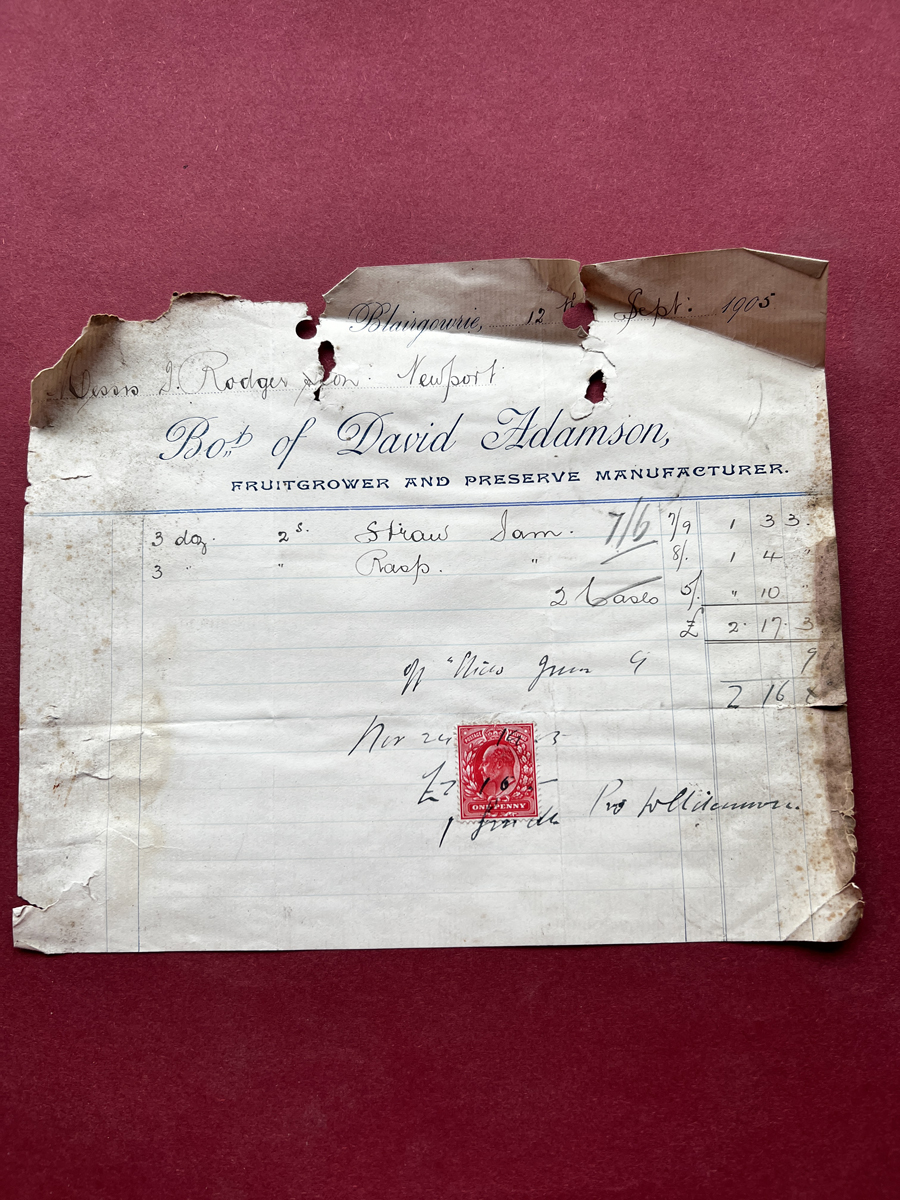 Blairgowrie, 12th Sept: 1905
Messrs J. Rodger & Son. Newport
Bot of David Adamson,
FRUITGROWER AND PRESERVE MANUFACTURER.
3 doz. 2s. Straw Jam. 7/6 7/9 1 3 3.
3 " " Rasp. " 8/. 1 4 "
2 Cases 5/. " 10 "
£ 2. 17. 3
9
9
2 16
Nov 24
POSTAGE
£2 16
ONE PENNY
Pro